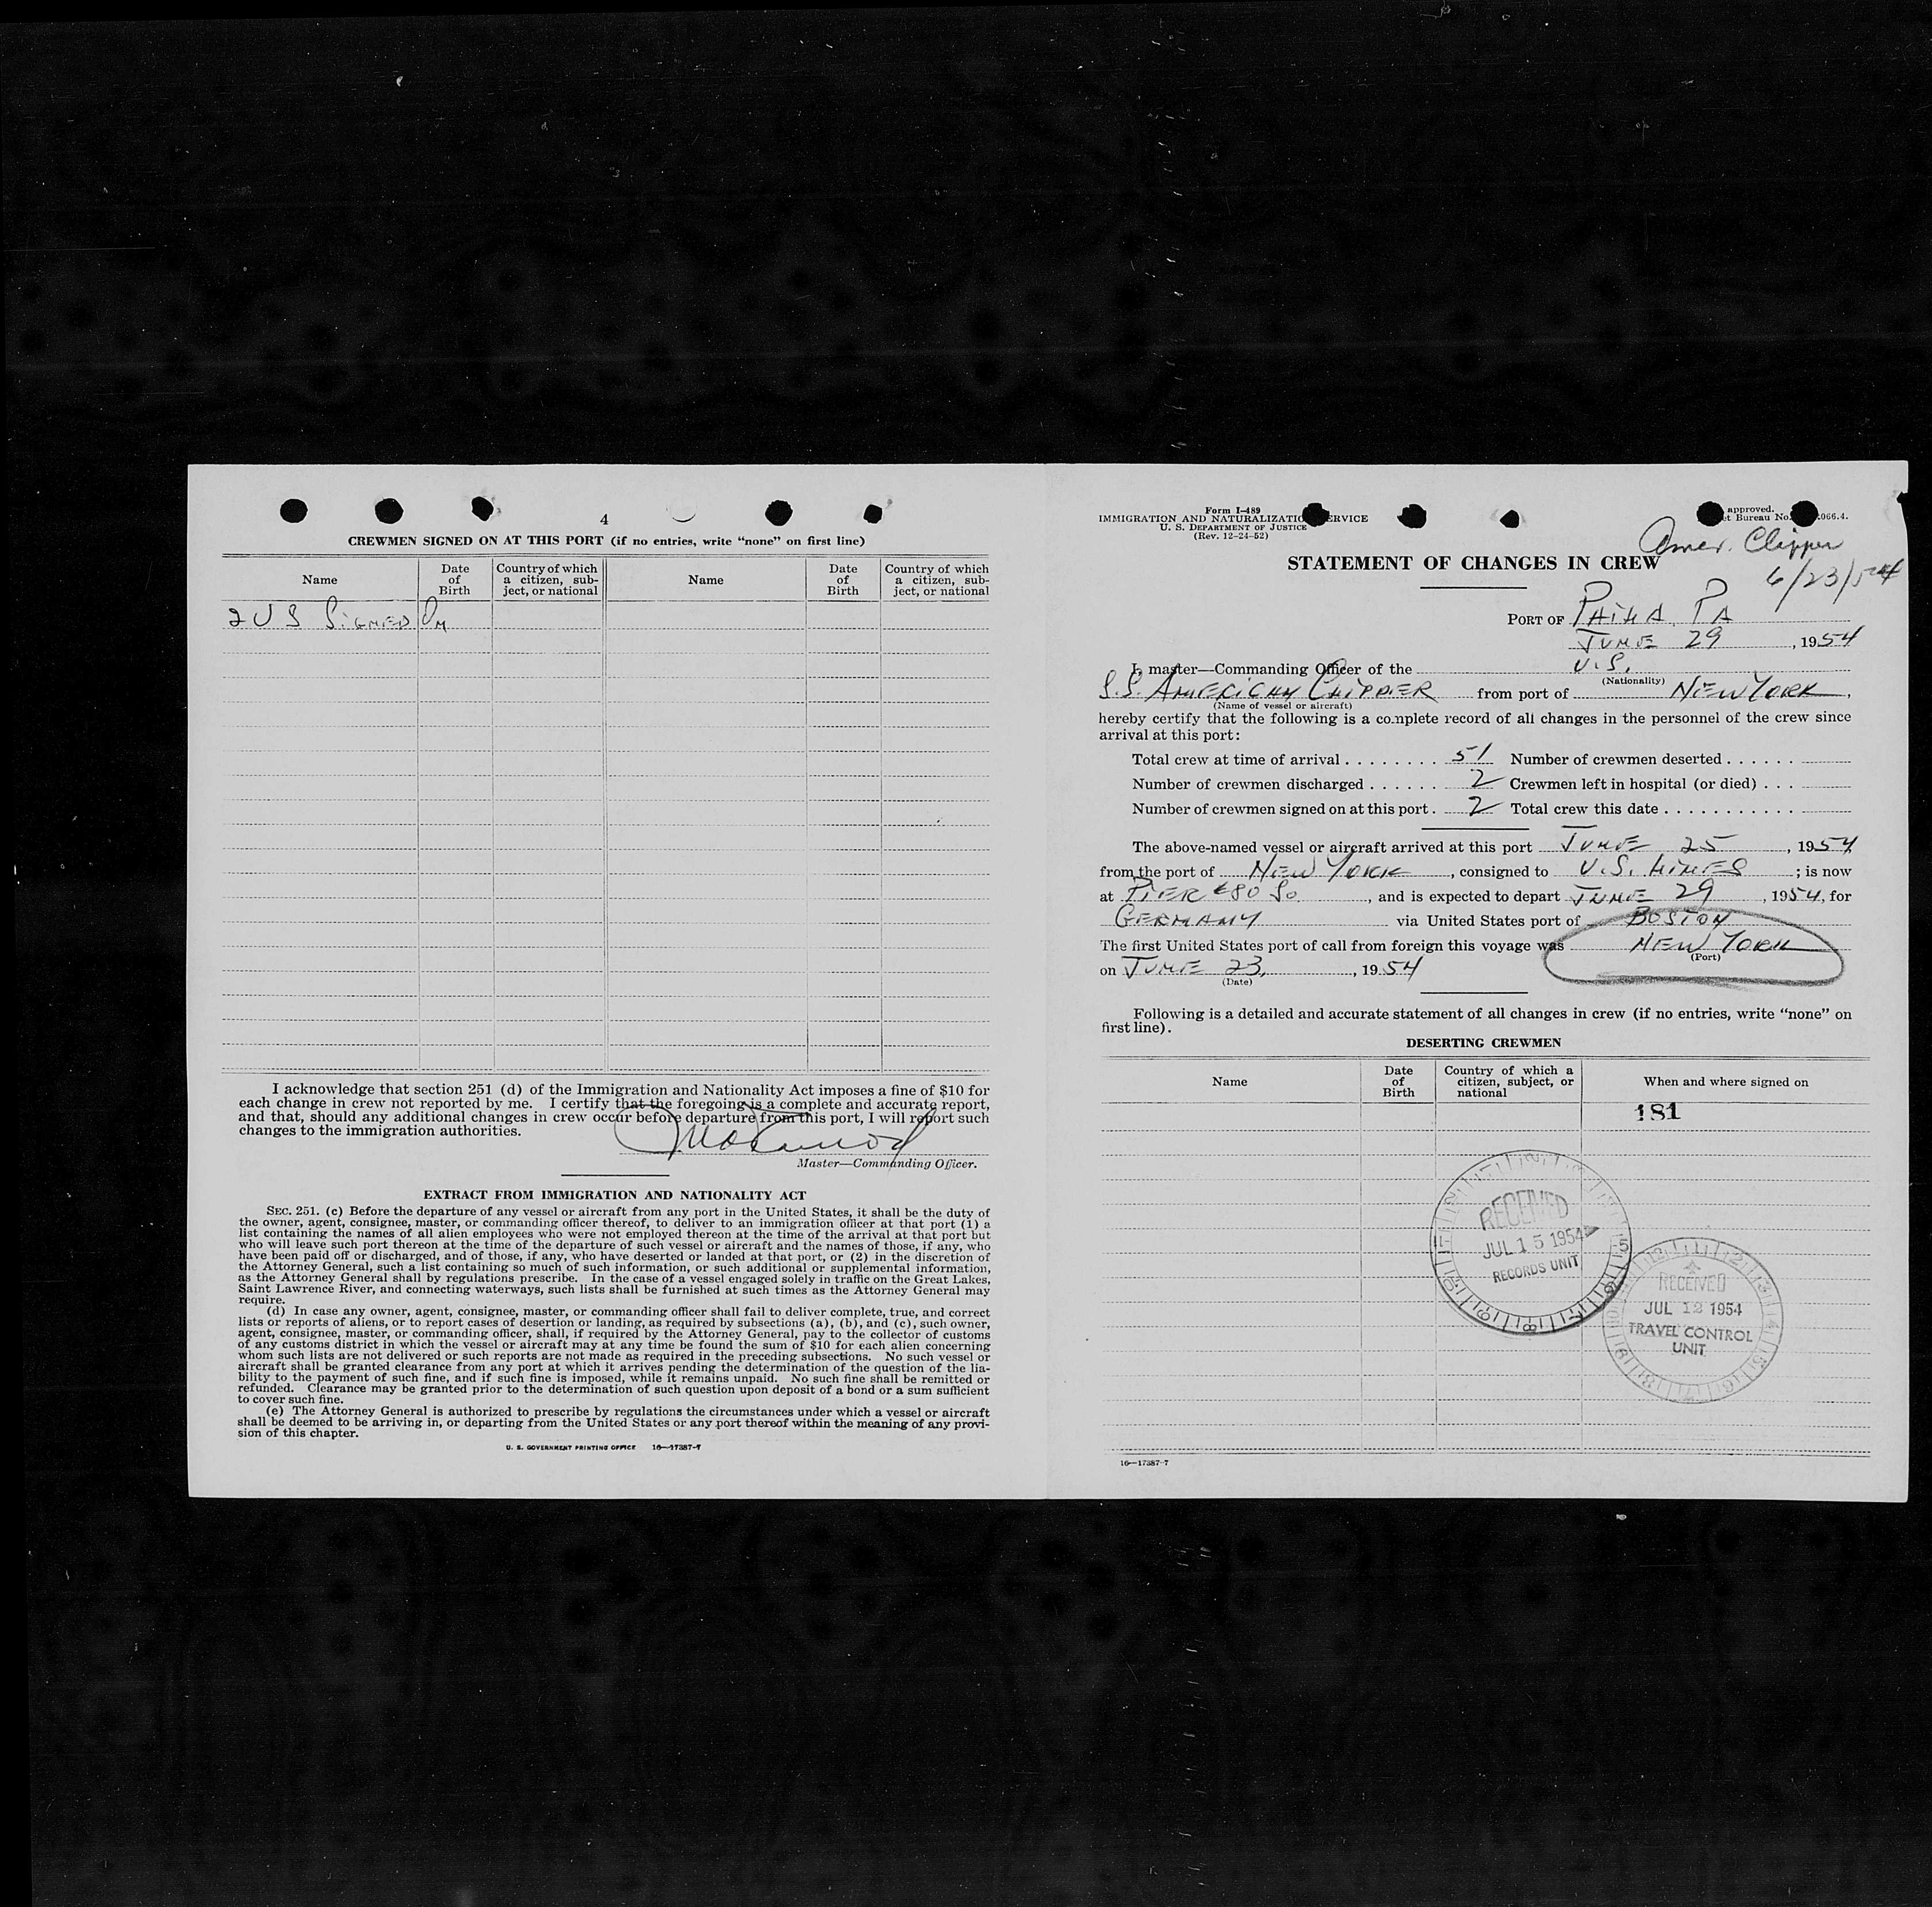 4
CREWMEN SIGNED ON AT THIS PORT (if no entries, write “none” on first line)
Name
Date of Birth
Country of which a citizen, sub-ject, or national
Name
Date of Birth
Country of which a citizen, sub-ject, or national
2 U S SIGNED ON
I acknowledge that section 251 (d) of the Immigration and Nationality Act imposes a fine of $10 for
each change in crew not reported by me. I certify that the foregoing is a complete and accurate report,
and that, should any additional changes in crew occur before departure from this port, I will report such
changes to the immigration authorities.
Master—Commanding Officer.
EXTRACT FROM IMMIGRATION AND NATIONALITY ACT
SEC. 251. (c) Before the departure of any vessel or aircraft from any port in the United States, it shall be the duty of
the owner, agent, consignee, master, or commanding officer thereof, to deliver to an immigration officer at that port (1) a
list containing the names of all alien employees who were not employed thereon at the time of the arrival at that port but
who will leave such port thereon at the time of the departure of such vessel or aircraft and the names of those, if any, who
have been paid off or discharged, and of those, if any, who have deserted or landed at that port, or (2) in the discretion of
the Attorney General, such a list containing so much of such information, or such additional or supplemental information,
as the Attorney General shall by regulations prescribe. In the case of a vessel engaged solely in traffic on the Great Lakes,
Saint Lawrence River, and connecting waterways, such lists shall be furnished at such times as the Attorney General may
require.
(d) In case any owner, agent, consignee, master, or commanding officer shall fail to deliver complete, true, and correct
lists or reports of aliens, or to report cases of desertion or landing, as required by subsections (a), (b), and (c), such owner,
agent, consignee, master, or commanding officer, shall, if required by the Attorney General, pay to the collector of customs
of any customs district in which the vessel or aircraft may at any time be found the sum of $10 for each alien concerning
whom such lists are not delivered or such reports are not made as required in the preceding subsections. No such vessel or
aircraft shall be granted clearance from any port at which it arrives pending the determination of the question of the lia-
bility to the payment of such fine, and if such fine is imposed, while it remains unpaid. No such fine shall be remitted or
refunded. Clearance may be granted prior to the determination of such question upon deposit of a bond or a sum sufficient
to cover such fine.
(e) The Attorney General is authorized to prescribe by regulations the circumstances under which a vessel or aircraft
shall be deemed to be arriving in, or departing from the United States or any port thereof within the meaning of any provi-
sion of this chapter.
U. S. GOVERNMENT PRINTING OFFICE 16—17387-7
Form I-489
IMMIGRATION AND NATURALIZATION SERVICE
U. S. DEPARTMENT OF JUSTICE
(Rev. 12-24-52)
approved.
Bureau No. 066.4.
Amer. Clipper
6/23/54
STATEMENT OF CHANGES IN CREW
PORT OF PHILA. PA
JUNE 29, 1954
I, master—Commanding Officer of the U.S.
(Nationality)
S.S. AMERICAN CLIPPER from port of NEW YORK,
(Name of vessel or aircraft)
hereby certify that the following is a complete record of all changes in the personnel of the crew since
arrival at this port:
Total crew at time of arrival . . . . . . . . 51 Number of crewmen deserted . . . . . .
Number of crewmen discharged . . . . . . 2 Crewmen left in hospital (or died) . . .
Number of crewmen signed on at this port . 2 Total crew this date . . . . . . . . . . .
The above-named vessel or aircraft arrived at this port JUNE 25, 1954
from the port of NEW YORK, consigned to U.S. LINES; is now
at PIER 80 So., and is expected to depart JUNE 29, 1954, for
GERMANY via United States port of BOSTON
The first United States port of call from foreign this voyage was NEW YORK
(Port)
on JUNE 23, 1954
(Date)
Following is a detailed and accurate statement of all changes in crew (if no entries, write “none” on
first line).
DESERTING CREWMEN
Name
Date of Birth
Country of which a citizen, subject, or national
When and where signed on
181
RECEIVED
JUL 15 1954
RECORDS UNIT
RECEIVED
JUL 12 1954
TRAVEL CONTROL
UNIT
16—17387-7